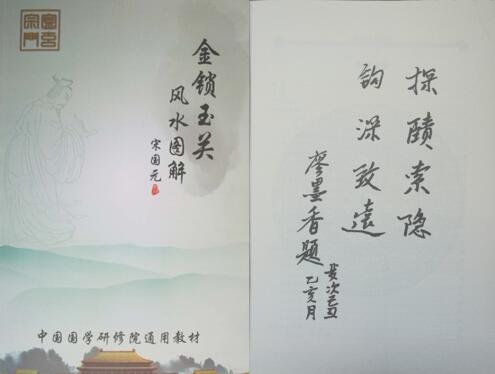 金锁玉关
风水图解
宋国元
中国国学研修院通用教材
探赜索隐
钩深致遠
廖墨香题
岁次己丑
乙亥月